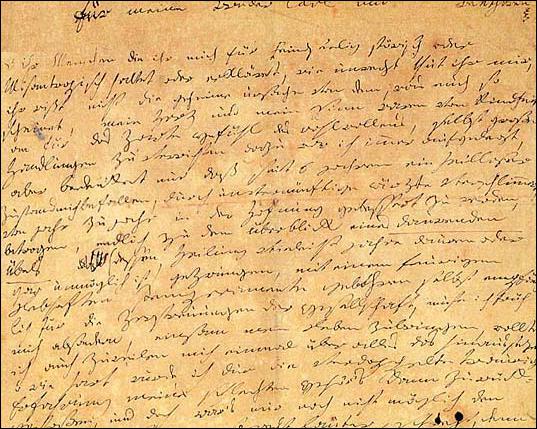 für meine Brüder Carl und Beethoven
o ihr Menschen die ihr mich für Feindseelig störisch oder
Misantropisch haltet oder erkläret, wie unrecht thut ihr mir,
ihr wißt nicht die geheime urßache von dem, was euch so
scheinet, mein Herz und mein Sinn waren von Kindheit
an für das Zarte gefühl des wohlwollens, selbst große
Handlungen zu verrichten dazu war ich imer aufgelegt,
aber bedenket nur daß seit 6 jahren ein heilloser
Zustand mich befallen, durch unvernünftige ärzte verschlimmert,
von jahr zu jahr in der Hofnung gebessert zu werden,
betrogen, endlich zu dem überblick eines daurenden
Übels (dessen Heilung vieleicht jahre dauren oder
gar unmöglich ist) gezwungen, mit einem feurigen
Lebhaften Temperamente gebohren selbst empfäng
lich für die Zerstreuungen der Gesellschaft, muste ich früh
mich absondern, einsam mein Leben zubringen, wollte
ich auch zuweilen mich einmal über alles das hinaussezen,
o wie hart wurde ich dur die verdoppelte traurige
Erfahrung meines schlechten Gehör's dann zurück-
gestoßen, und doch war's mir noch nicht möglich den
sprecht lauter, schreyt, denn